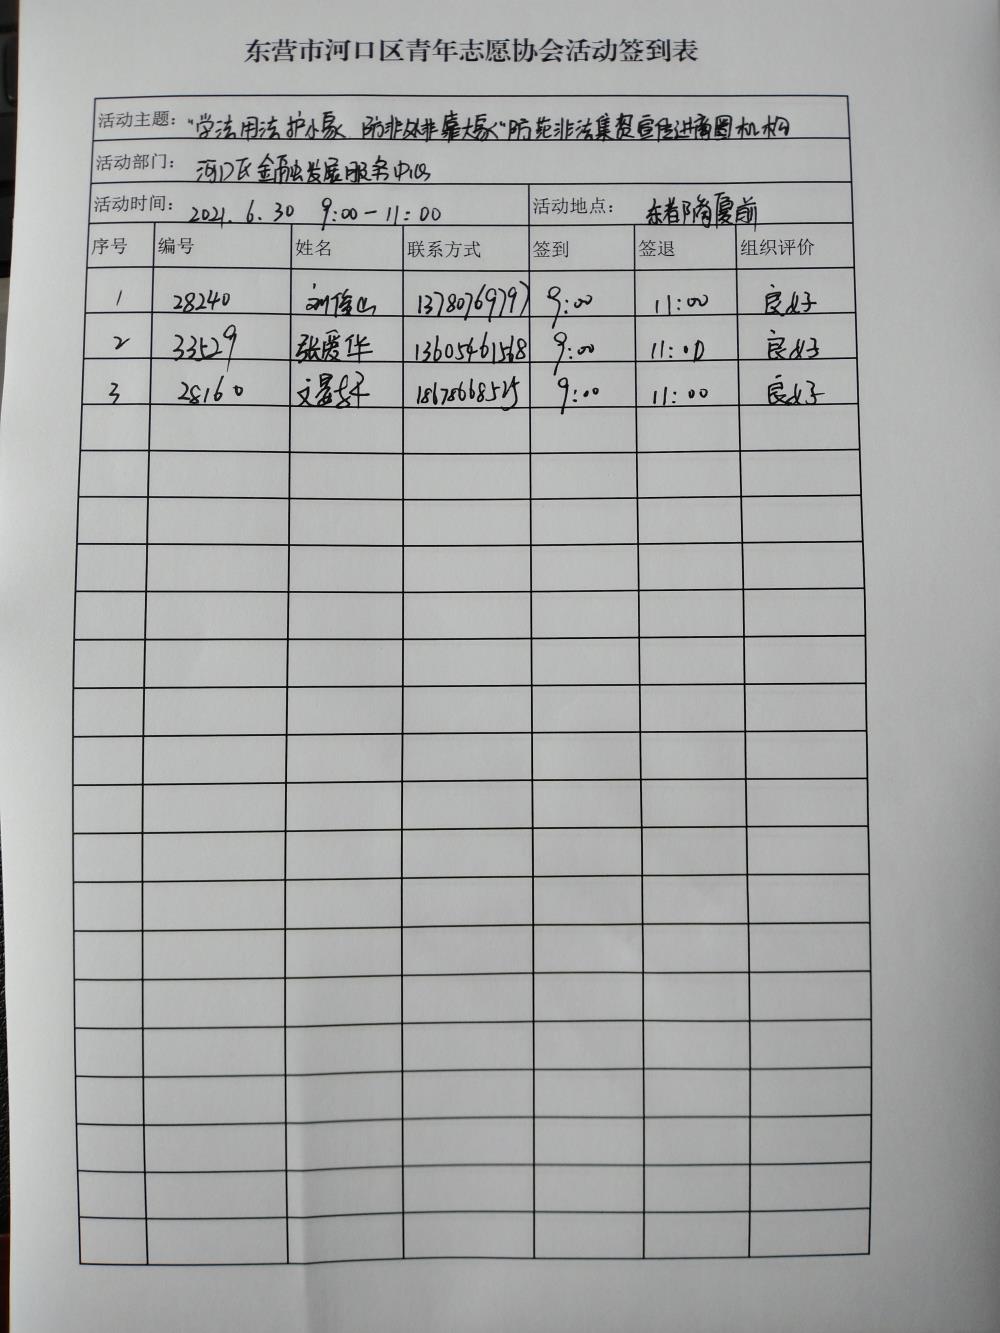 东营市河口区青年志愿协会活动签到表
活动主题：“学法用法护小家 防非处非靠大家”防范非法集资宣传进商圈机构
活动部门：河口区金融发展服务中心
活动时间：2021.6.30 9:00-11:00 活动地点：东都商厦前
序号 编号 姓名 联系方式 签到 签退 组织评价
1 28240 刘俊山 13780769797 9:00 11:00 良好
2 33529 张爱华 13605461568 9:00 11:00 良好
3 28160 文 18678668525 9:00 11:00 良好